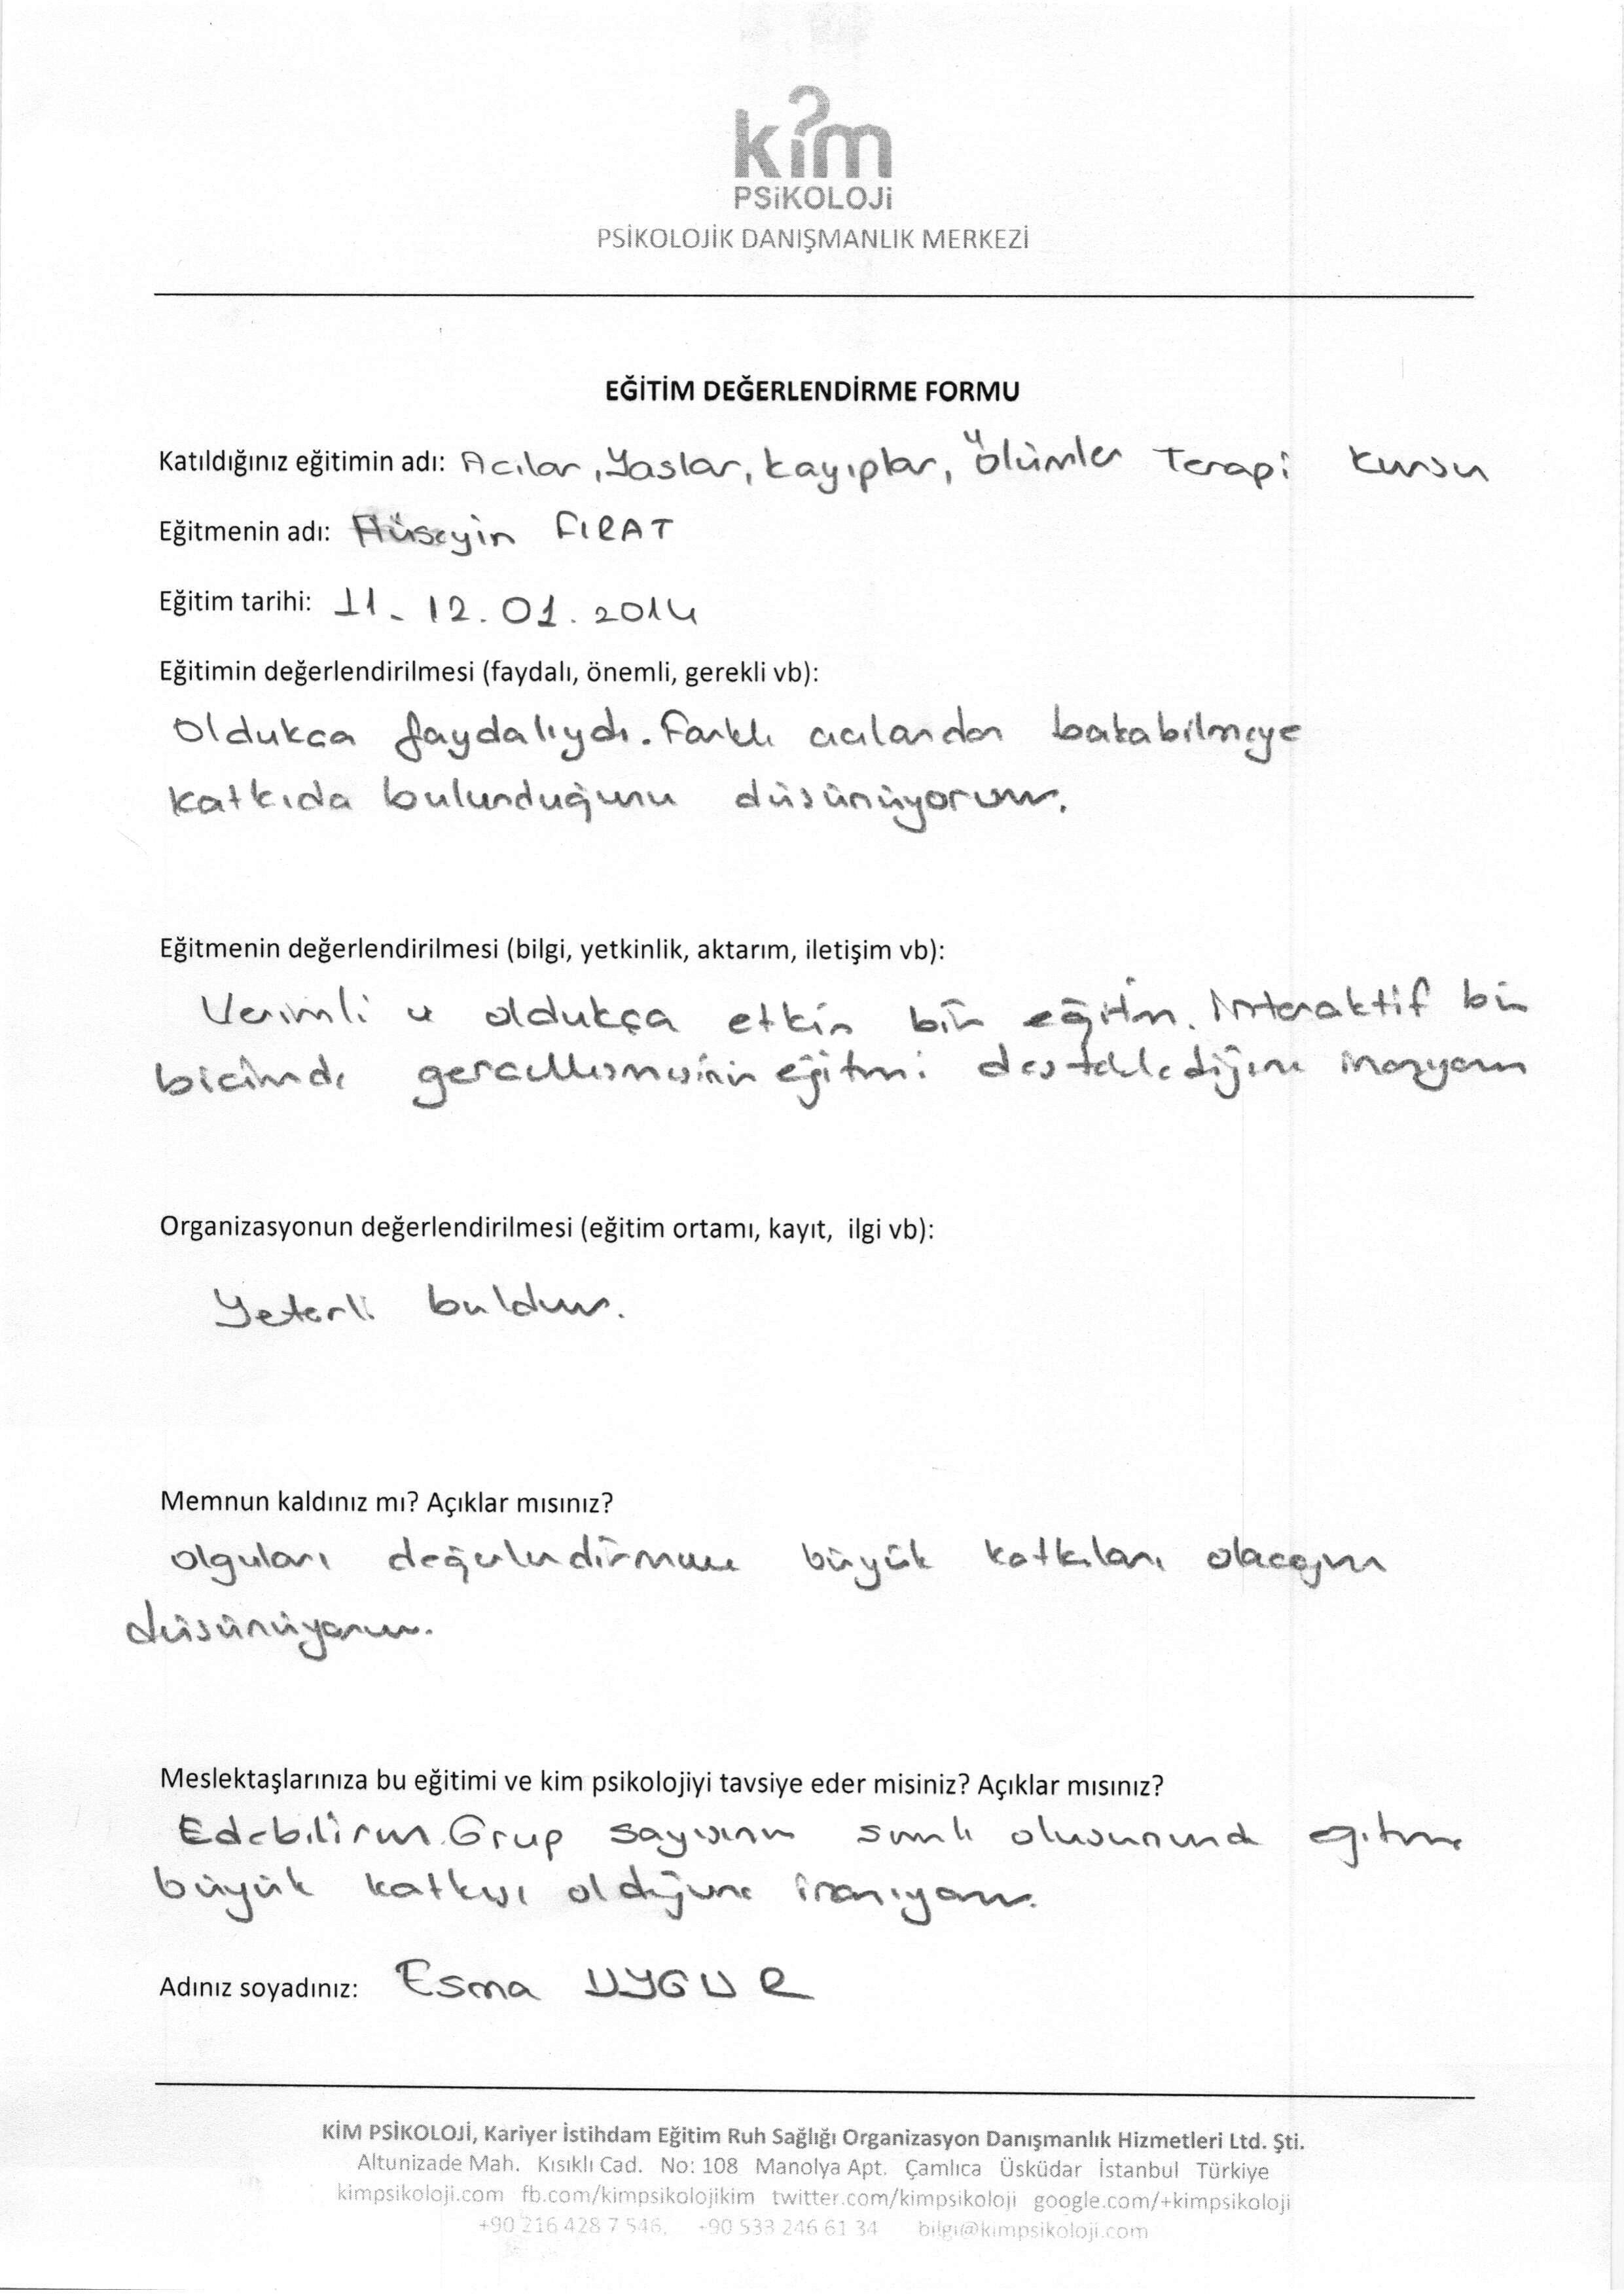 kim
PSiKOLOJi
PSİKOLOJİK DANIŞMANLIK MERKEZİ
EĞİTİM DEĞERLENDİRME FORMU
Katıldığınız eğitimin adı: Acılar, Yaslar, kayıplar, Ölümler Terapi Kursu
Eğitmenin adı: Hüseyin FIRAT
Eğitim tarihi: 11-12.01.2014
Eğitimin değerlendirilmesi (faydalı, önemli, gerekli vb):
Oldukca faydalıydı. Farklı acılardan bakabilmeye
katkıda bulunduğunu düsünüyorum.
Eğitmenin değerlendirilmesi (bilgi, yetkinlik, aktarım, iletişim vb):
Verimli ve oldukça etkin bir eğitim. İnteraktif bir
bicimde gerceklesmesinin eğitimi desteklediğine inanıyorum
Organizasyonun değerlendirilmesi (eğitim ortamı, kayıt, ilgi vb):
Yeterli buldum.
Memnun kaldınız mı? Açıklar mısınız?
olguları değerlendirmeme büyük katkıları olacağını
düsünüyorum.
Meslektaşlarınıza bu eğitimi ve kim psikolojiyi tavsiye eder misiniz? Açıklar mısınız?
Edebilirim. Grup sayısının sınırlı olusununda eğitime
büyük katkısı olduğuna inanıyorum.
Adınız soyadınız: Esma UYGUR
KİM PSİKOLOJİ, Kariyer İstihdam Eğitim Ruh Sağlığı Organizasyon Danışmanlık Hizmetleri Ltd. Şti.
Altunizade Mah. Kısıklı Cad. No: 108 Manolya Apt. Çamlıca Üsküdar İstanbul Türkiye
kimpsikoloji.com fb.com/kimpsikolojikim twitter.com/kimpsikoloji google.com/+kimpsikoloji
+90 216 428 7 546, +90 533 246 61 34 bilgi@kimpsikoloji.com